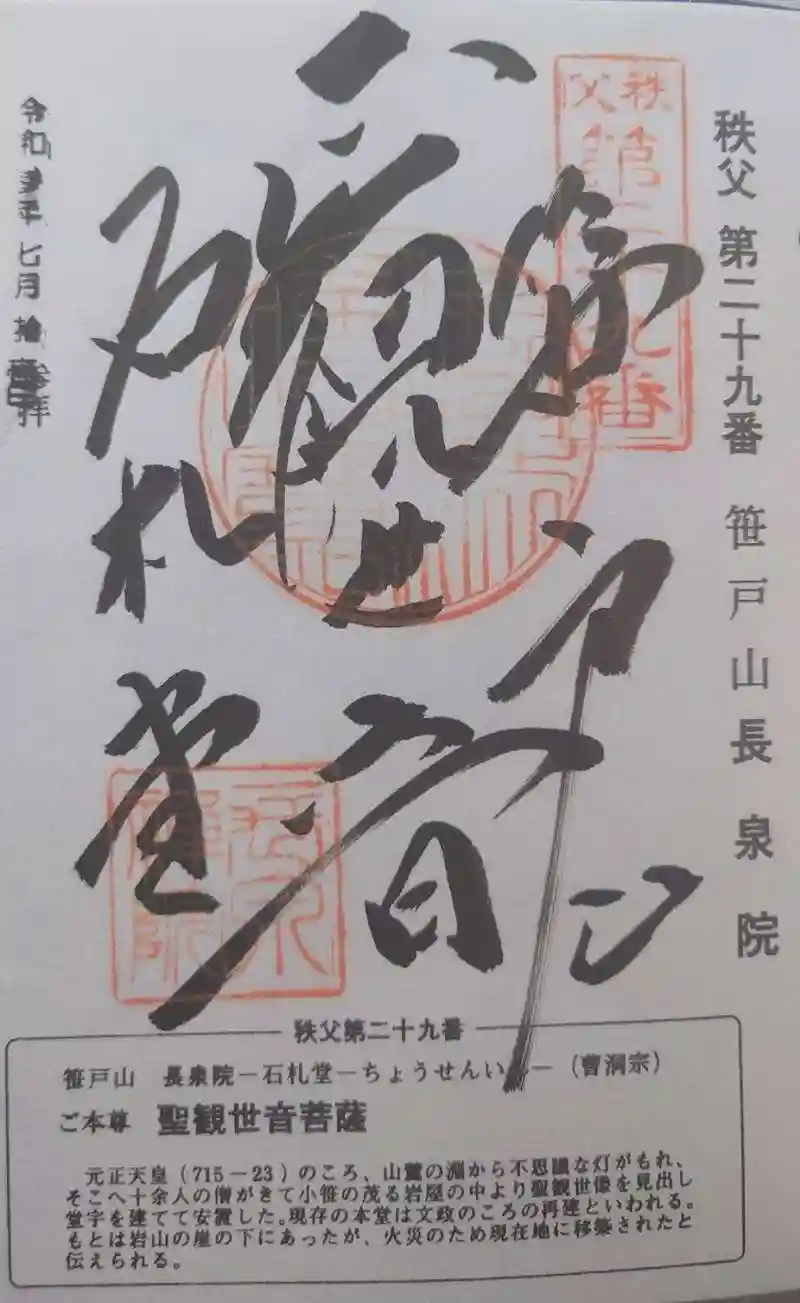 秩父 第二十九番 笹戸山長泉院
秩父
第二十九番
聖観世音
石札堂
令和 年 七月 拾 参拝
秩父第二十九番
笹戸山 長泉院－石札堂－ちょうせんい －（曹洞宗）
ご本尊 聖観世音菩薩
元正天皇（715－23）のころ、山麓の淵から不思議な灯がもれ、
そこへ十余人の僧がきて小笹の茂る岩屋の中より聖観世像を見出し
堂宇を建てて安置した。現存の本堂は文政のころの再建といわれる。
もとは岩山の崖の下にあったが、火災のため現在地に移築されたと
伝えられる。